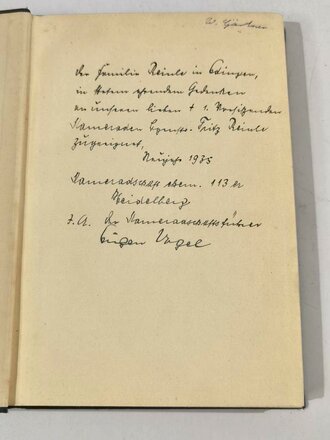 der Familie Reinle in Edingen,
in stetem ehrenden Gedenken
an unseren lieben † 1. Vorsitzenden
Kameraden Fritz Reinle
zugeeignet,
Neujahr 1935
Kameradschaft ehem. 113 er
Heidelberg
I. A. Der Kameradschaftsführer
Eugen Vogel